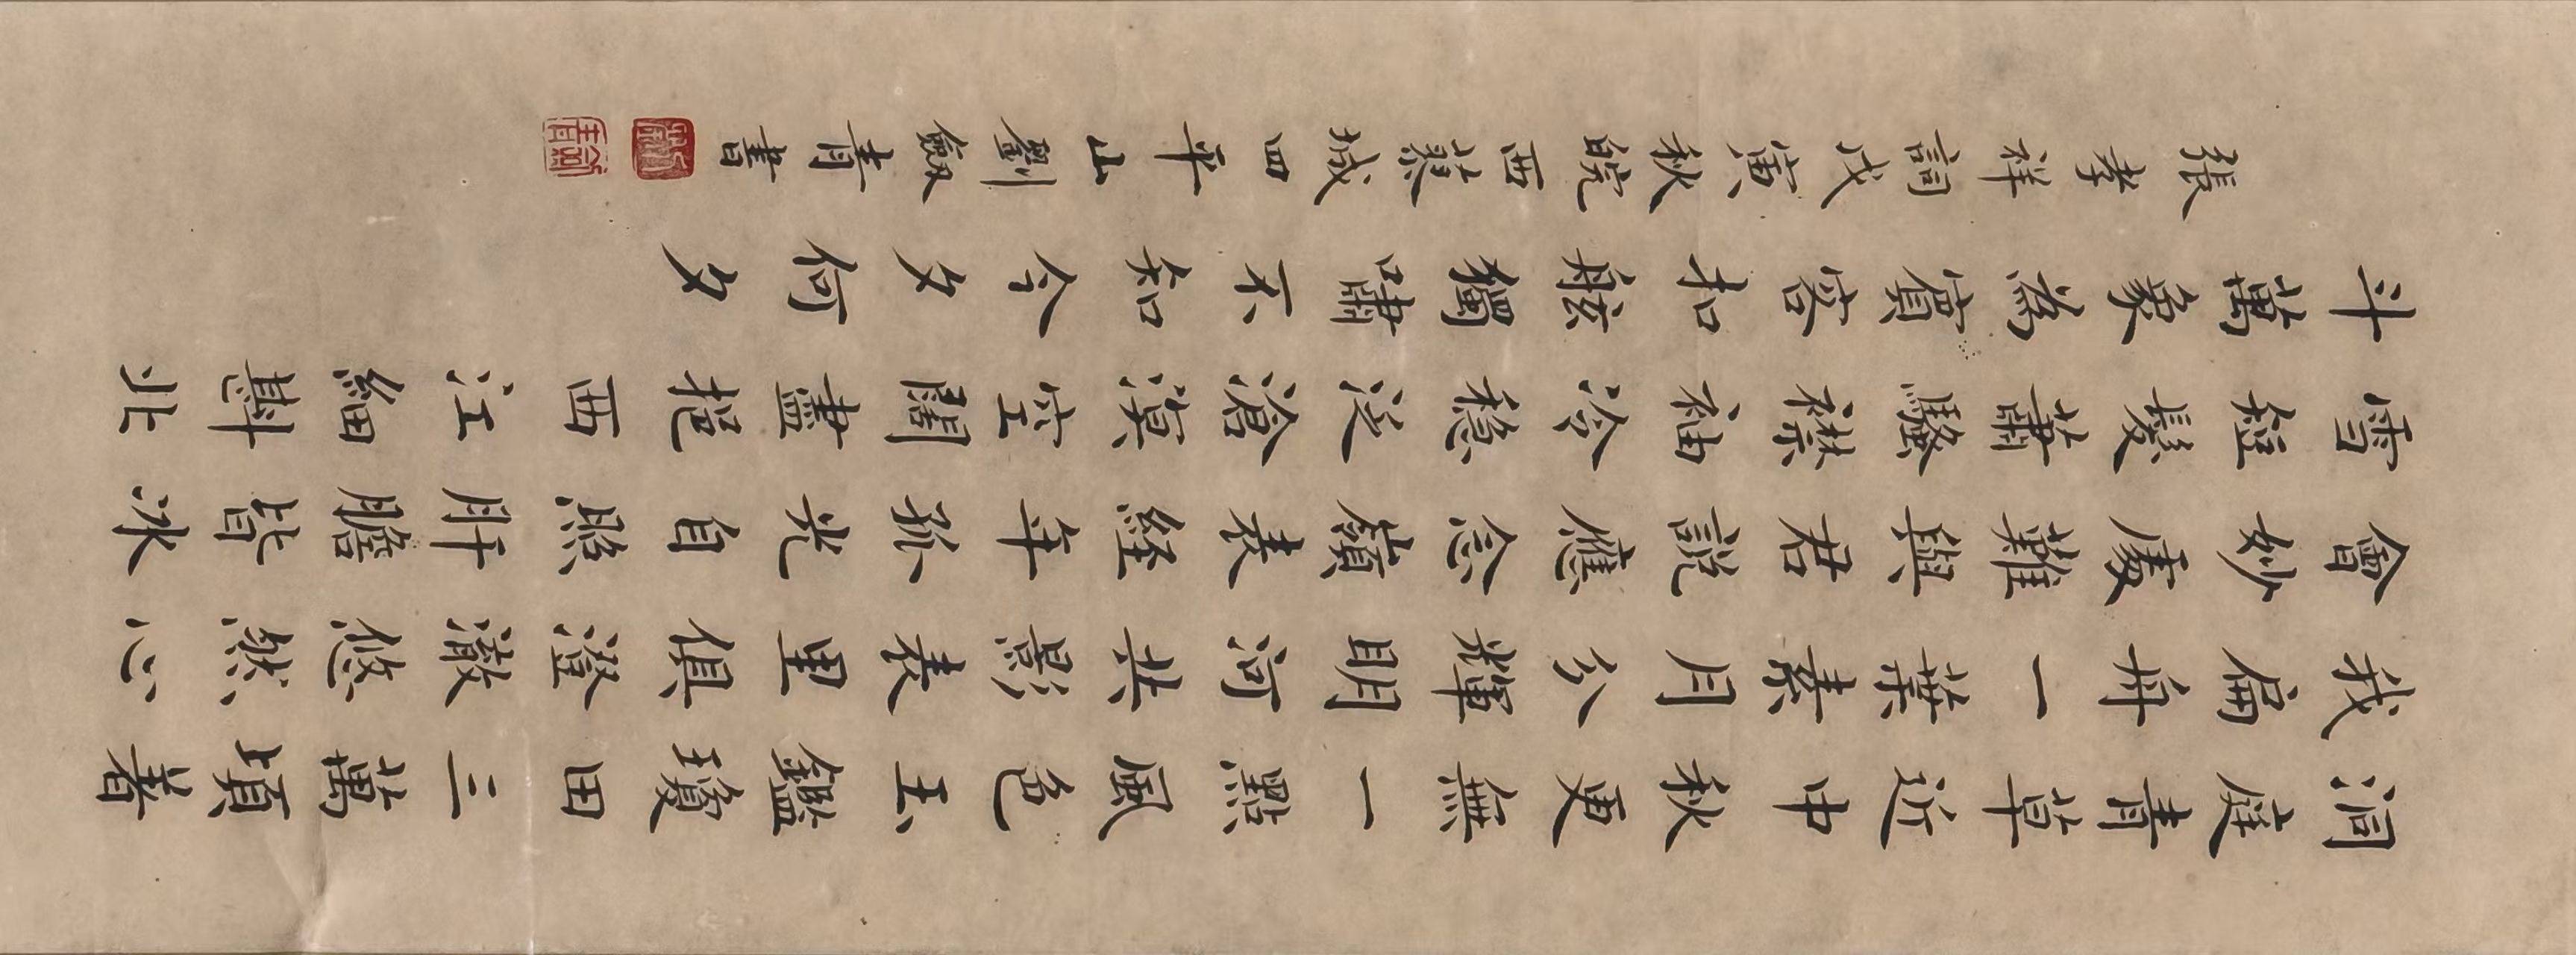 洞庭青草近中秋更無一點風色玉鑑瓊田三萬頃著
我扁舟一葉素月分輝明河共影表里俱澄澈悠然心
會妙處難與君說應念嶺表經年孤光自照肝膽皆冰
雪短髮蕭騷襟袖冷穩泛滄溟空闊盡挹西江細斟北
斗萬象為賓客扣舷獨嘯不知今夕何夕
張孝祥詞戊寅秋皖西蓼城四平山劉劒青書